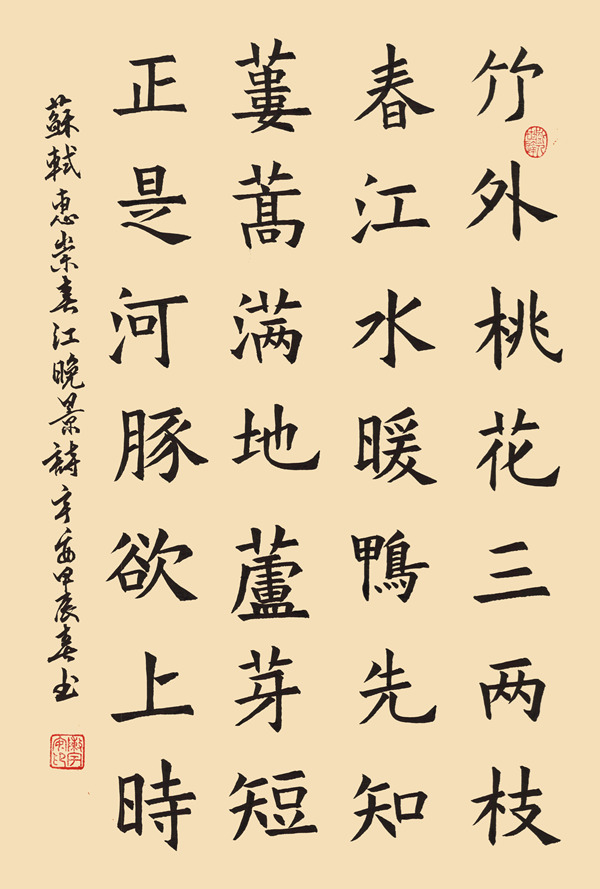 竹外桃花三两枝
春江水暖鴨先知
蔞蒿满地蘆芽短
正是河豚欲上時
蘇軾惠崇春江晚景詩宇安甲辰春书